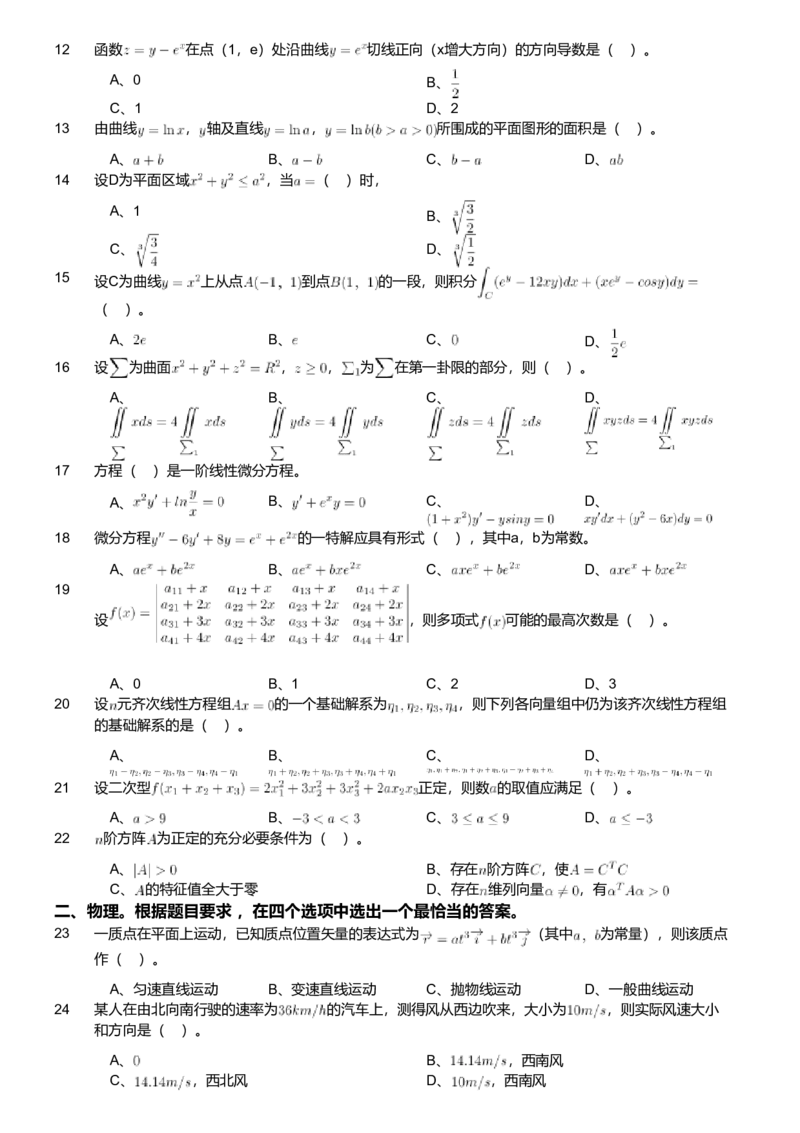 12 函数z = y − e^x在点（1，e）处沿曲线y = e^x切线正向（x增大方向）的方向导数是（ ）。
A、0 B、1/2
C、1 D、2
13 由曲线y = ln x，y轴及直线y = ln a，y = ln b(b > a > 0)所围成的平面图形的面积是（ ）。
A、a + b B、a − b C、b − a D、ab
14 设D为平面区域x² + y² ≤ a²，当a = （ ）时，
A、1 B、∛(3/2)
C、∛(3/4) D、∛(1/2)
15 设C为曲线y = x²上从点A(−1，1)到点B(1，1)的一段，则积分∫_C (e^y − 12xy)dx + (xe^y − cosy)dy =
（ ）。
A、2e B、e C、0 D、1/2 e
16 设∑为曲面x² + y² + z² = R²，z ≥ 0，∑₁为∑在第一卦限的部分，则（ ）。
A、 B、 C、 D、
∬_∑ xds = 4∬_∑₁ xds ∬_∑ yds = 4∬_∑₁ yds ∬_∑ zds = 4∬_∑₁ zds ∬_∑ xyzds = 4∬_∑₁ xyzds
17 方程（ ）是一阶线性微分方程。
A、x²y′ + ln y/x = 0 B、y′ + e^x y = 0 C、 D、
(1 + x²)y′ − ysiny = 0 xy′dx + (y² − 6x)dy = 0
18 微分方程y″ − 6y′ + 8y = e^x + e^2x的一特解应具有形式（ ），其中a，b为常数。
A、ae^x + be^2x B、ae^x + bxe^2x C、axe^x + be^2x D、axe^x + bxe^2x
19
a₁₁ + x a₁₂ + x a₁₃ + x a₁₄ + x
a₂₁ + 2x a₂₂ + 2x a₂₃ + 2x a₂₄ + 2x
设f(x) = a₃₁ + 3x a₃₂ + 3x a₃₃ + 3x a₃₄ + 3x，则多项式f(x)可能的最高次数是（ ）。
a₄₁ + 4x a₄₂ + 4x a₄₃ + 4x a₄₄ + 4x
A、0 B、1 C、2 D、3
20 设n元齐次线性方程组Ax = 0的一个基础解系为η₁, η₂, η₃, η₄，则下列各向量组中仍为该齐次线性方程组
的基础解系的是（ ）。
A、 B、 C、 D、
η₁ − η₂, η₂ − η₃, η₃ − η₄, η₄ − η₁ η₁ + η₂, η₂ + η₃, η₃ + η₄, η₄ + η₁ η₁ + η₂, η₂ + η₃, η₃ − η₄, η₄ − η₁
21 设二次型f(x₁ + x₂ + x₃) = 2x₁² + 3x₂² + 3x₃² + 2ax₂x₃正定，则数a的取值应满足（ ）。
A、a > 9 B、−3 < a < 3 C、3 ≤ a ≤ 9 D、a ≤ −3
22 n阶方阵A为正定的充分必要条件为（ ）。
A、|A| > 0 B、存在n阶方阵C，使A = C^T C
C、A的特征值全大于零 D、存在n维列向量α ≠ 0，有α^T Aα > 0
二、物理。根据题目要求，在四个选项中选出一个最恰当的答案。
23 一质点在平面上运动，已知质点位置矢量的表达式为r⃗ = at³i⃗ + bt³j⃗（其中a，b为常量），则该质点
作（ ）。
A、匀速直线运动 B、变速直线运动 C、抛物线运动 D、一般曲线运动
24 某人在由北向南行驶的速率为36km/h的汽车上，测得风从西边吹来，大小为10m/s，则实际风速大小
和方向是（ ）。
A、0 B、14.14m/s，西南风
C、14.14m/s，西北风 D、10m/s，西南风